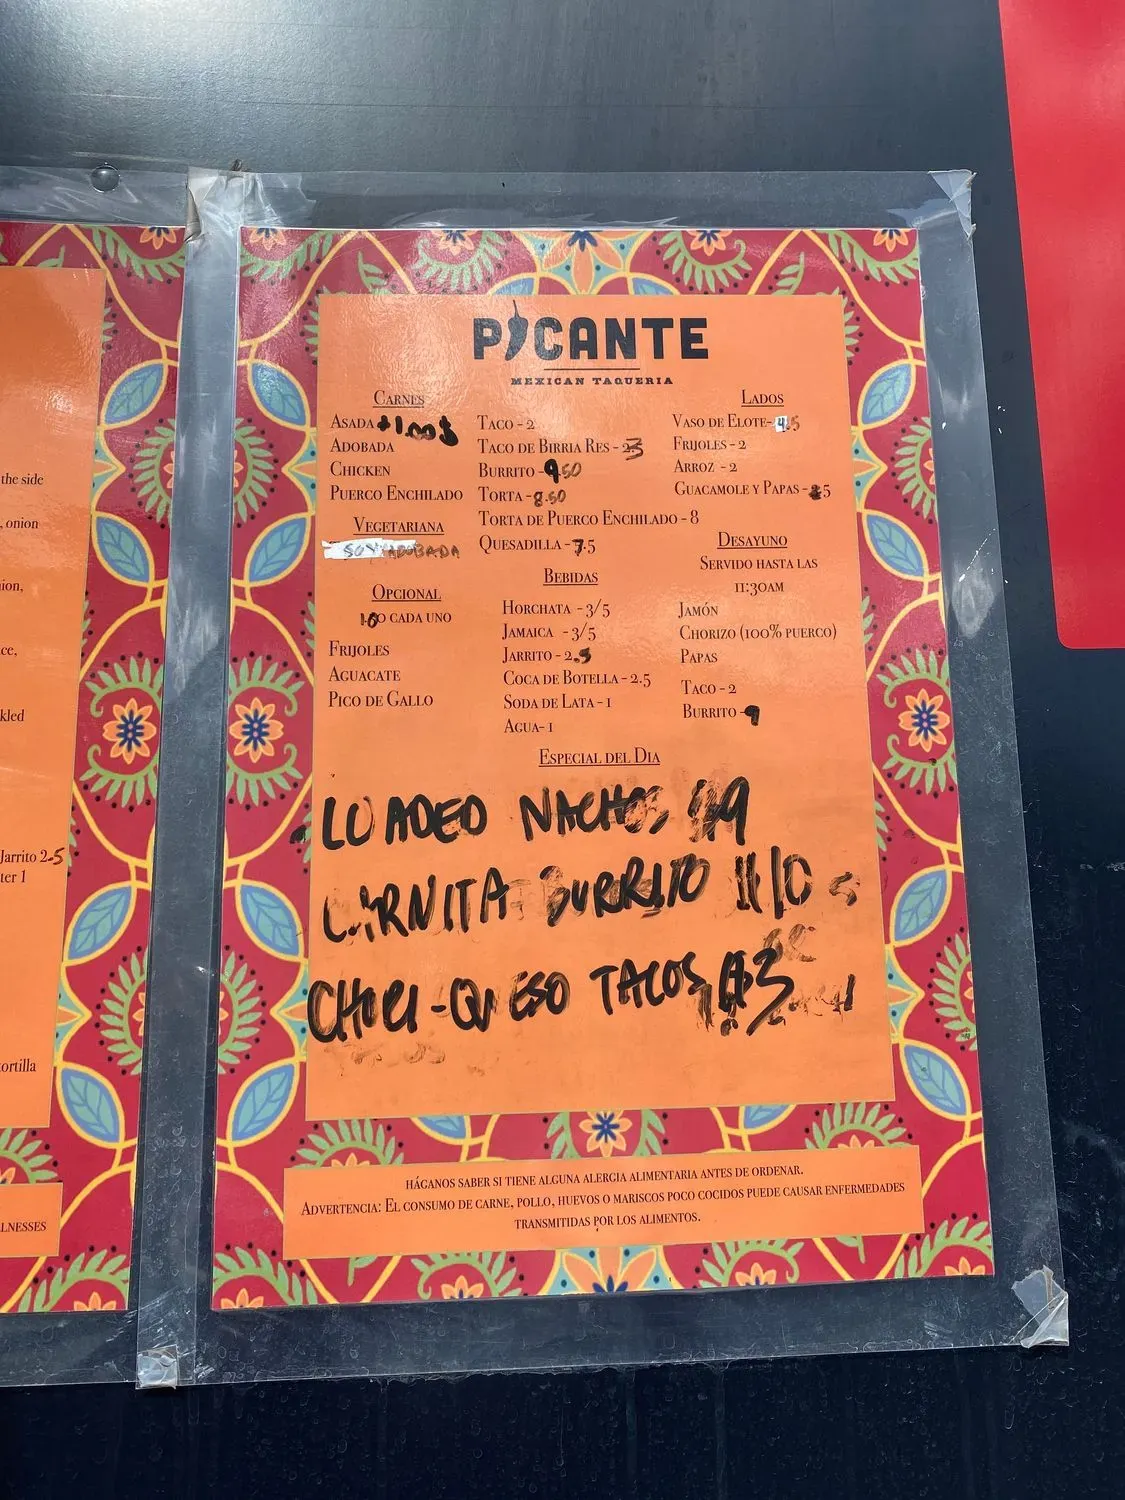 the side
, onion
ion,
ce,
kled
Jarrito 2.5
ter 1
ortilla
LNESSES
PICANTE
MEXICAN TAQUERIA
CARNES
ASADA +1.00$
ADOBADA
CHICKEN
PUERCO ENCHILADO
VEGETARIANA
SOY ADOBADA
OPCIONAL
1.00 CADA UNO
FRIJOLES
AGUACATE
PICO DE GALLO
TACO - 2
TACO DE BIRRIA RES - 3
BURRITO - 9.50
TORTA - 8.50
TORTA DE PUERCO ENCHILADO - 8
QUESADILLA - 7.5
BEBIDAS
HORCHATA - 3/5
JAMAICA - 3/5
JARRITO - 2.5
COCA DE BOTELLA - 2.5
SODA DE LATA - 1
AGUA- 1
LADOS
VASO DE ELOTE- 4.5
FRIJOLES - 2
ARROZ - 2
GUACAMOLE Y PAPAS - 5
DESAYUNO
SERVIDO HASTA LAS
11:30AM
JAMÓN
CHORIZO (100% PUERCO)
PAPAS
TACO - 2
BURRITO - 9
ESPECIAL DEL DIA
LOADED NACHOS $9
CARNITA BURRITO 10
CHORI-QUESO TACOS $3
HÁGANOS SABER SI TIENE ALGUNA ALERGIA ALIMENTARIA ANTES DE ORDENAR.
ADVERTENCIA: EL CONSUMO DE CARNE, POLLO, HUEVOS O MARISCOS POCO COCIDOS PUEDE CAUSAR ENFERMEDADES
TRANSMITIDAS POR LOS ALIMENTOS.